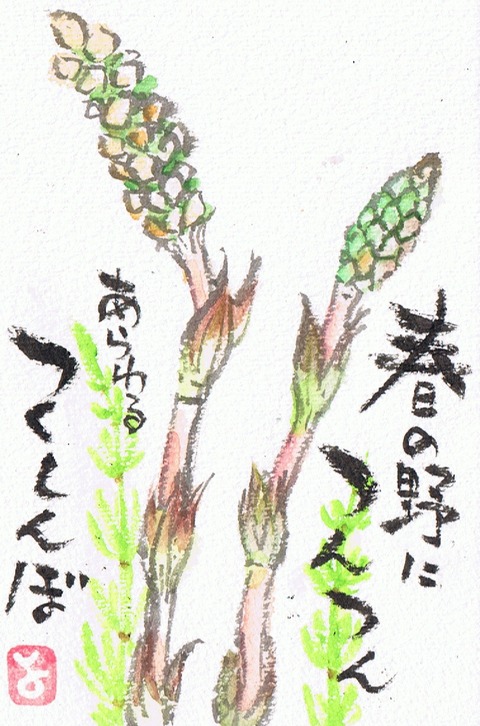 春の野に
つんつん
あらわる
つくしんぼ